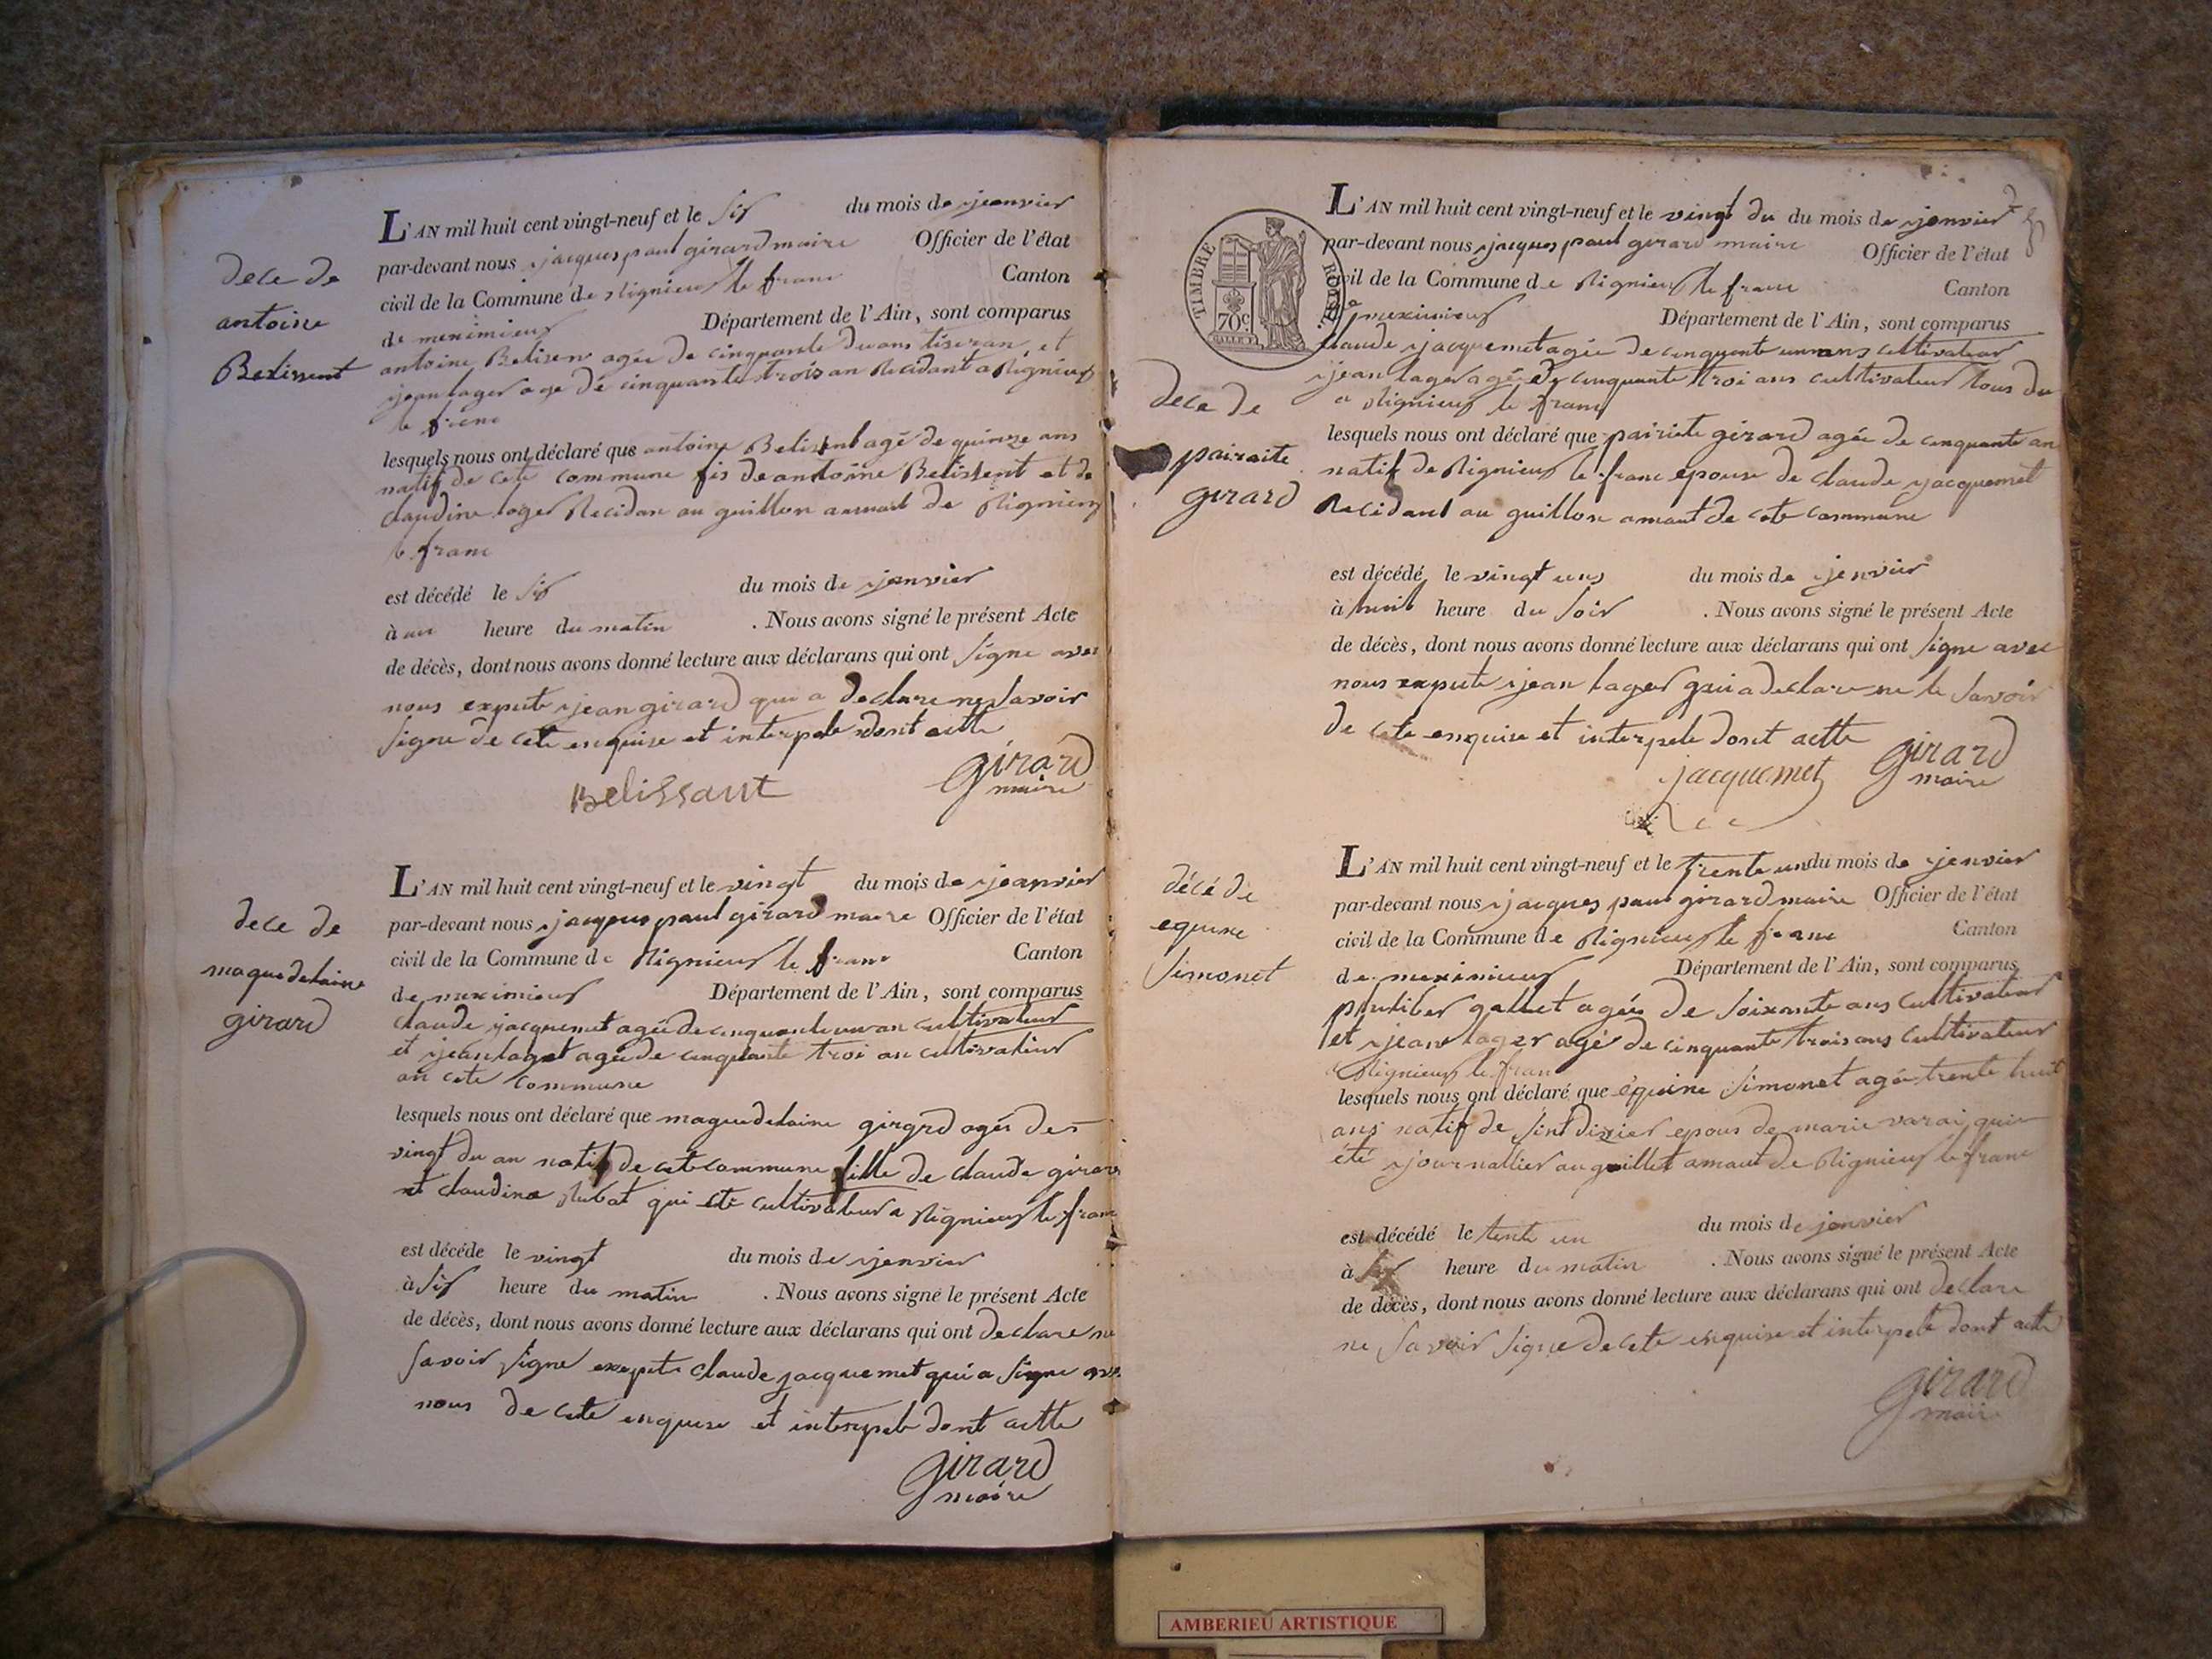 dece de
antoine
Belissent
L'AN mil huit cent vingt-neuf et le six du mois de jeanvier
par-devant nous jacques paul girard maire Officier de l'état
civil de la Commune de Rignieux le franc Canton
de meximieux Département de l'Ain, sont comparus
antoine Belisen agée de cinquante du ans tiseran, et
jean lager age de cinquante trois an Recidant a Rignieux
le franc
lesquels nous ont déclaré que antoine Belissent agé de quinze ans
natif de cete commune fis de antoine Belissent et de
claudine loger Recidan au guillon amaut de Rignieux
le franc
est décédé le six du mois de janvier
à un heure du matin . Nous avons signé le présent Acte
de décès, dont nous avons donné lecture aux déclarans qui ont signe avec
nous expete jean girard qui a declare ne savoir
signe de cete enquise et interpele dont actte
Belissant girard
maire
dece de
maguedelaine
girard
L'AN mil huit cent vingt-neuf et le vingt du mois de jeanvier
par-devant nous jacques paul girard maire Officier de l'état
civil de la Commune de Rignieux le franc Canton
de meximieux Département de l'Ain, sont comparus
claude jacquemet agée de cinquante un an cultivateur
et jean lager agée de cinquante troi an cultivateur
an cete commune
lesquels nous ont déclaré que maguedelaine girard agés des
vingt du an natif de cete commune fille de claude girard
et claudine Rubat qui eté cultivateur a Rignieux le franc
est décéde le vingt du mois de jenvier
à six heure du matin . Nous avons signé le présent Acte
de décès, dont nous avons donné lecture aux déclarans qui ont declare ne
savoir signe exepte claude jacquemet qui a signe avec
nous de cete enquise et interpele dont actte
girard
maire
TIMBRE ROYAL.
70c
L'AN mil huit cent vingt-neuf et le vingt du du mois de jenvier
par-devant nous jacques paul girard maire Officier de l'état
civil de la Commune de Rignieux le franc Canton
de meximieux Département de l'Ain, sont comparus
claude jacquemet agée de cinquante un ans cultivateur
jean lager agée de cinquante troi ans cultivateur tous du
a Rignieux le franc
dece de
pairaite
girard
lesquels nous ont déclaré que pairiete girard agée de cinquante an
natif de Rignieux le franc epouse de claude jacquemet
Recidant au guillon amaut de cete commune
est décédé le vingt uns du mois de jenvier
à huit heure du soir . Nous avons signé le présent Acte
de décès, dont nous avons donné lecture aux déclarans qui ont signe avec
nous expete jean lager qui a declare ne le savoir
de cete enquise et interpele dont actte
jacquemet girard
maire
décé de
equine
simonet
L'AN mil huit cent vingt-neuf et le trente un du mois de jenvier
par-devant nous jacques paul girard maire Officier de l'état
civil de la Commune de Rignieux le franc Canton
de meximieux Département de l'Ain, sont comparus
gallet agée de soixante ans cultivateur
et jean lager agé de cinquante trois ans cultivateur
a Rignieux le fran
lesquels nous ont déclaré que equine simonet agée trente huit
ans natif de sint dizier epous de marie varai, qui
été journallier au guillet amaut de Rignieux le franc
est décédé le tente un du mois de janvier
à six heure du matin . Nous avons signé le présent Acte
de décès, dont nous avons donné lecture aux déclarans qui ont declare
ne savoir signe de cete enquise et interpele dont actte
girard
maire
AMBERIEU ARTISTIQUE